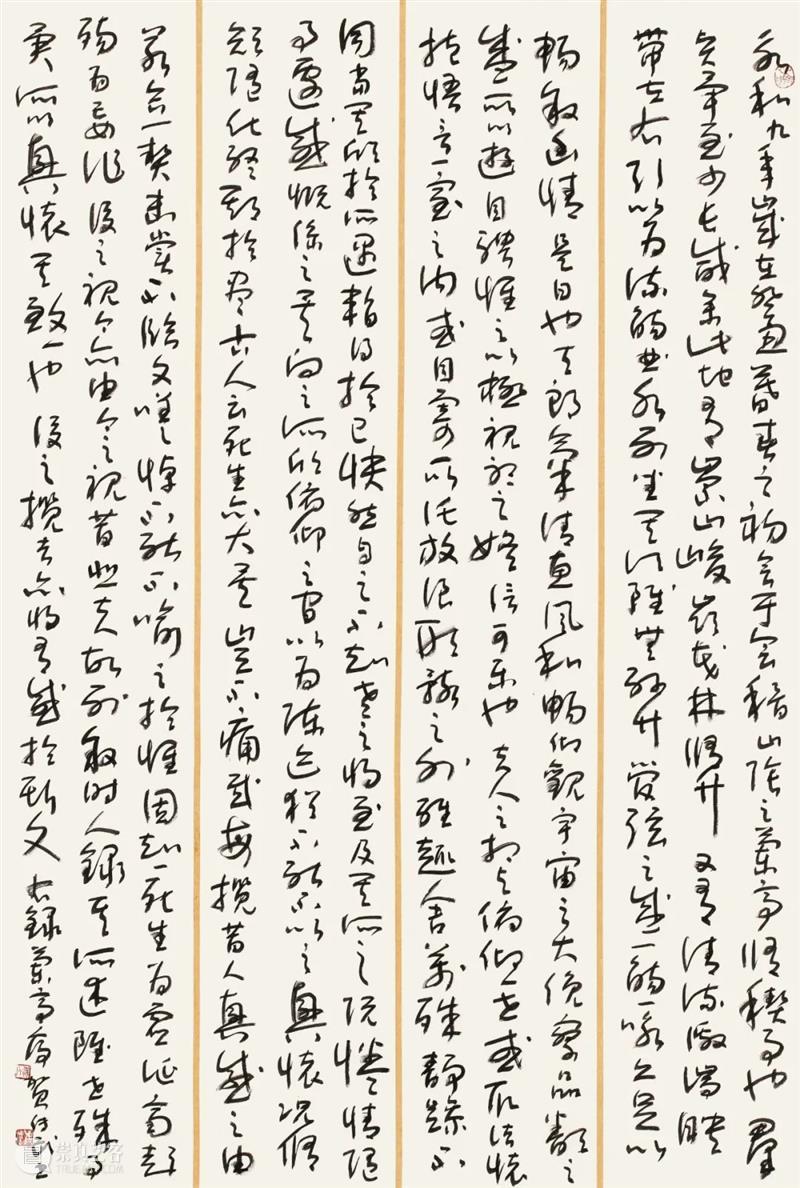 永和九年歲在癸丑暮春之初會于會稽山陰之蘭亭脩稧事也羣
賢畢至少長咸集此地有崇山峻嶺茂林脩竹又有清流激湍映
帶左右引以為流觴曲水列坐其次雖無絲竹管弦之盛一觴一詠亦足以
暢敘幽情是日也天朗氣清惠風和暢仰觀宇宙之大俛察品類之
盛所以遊目騁懷足以極視聽之娛信可樂也夫人之相與俯仰一世或取諸懷
抱悟言一室之內或因寄所託放浪形骸之外雖趣舍萬殊靜躁不
同當其欣於所遇暫得於己快然自足不知老之將至及其所之既惓情隨
事遷感慨係之矣向之所欣俯仰之間以為陳迹猶不能不以之興懷況脩
短隨化終期於盡古人云死生亦大矣豈不痛哉每攬昔人興感之由
若合一契未嘗不臨文嗟悼不能喻之於懷固知一死生為虛誕齊彭
殤為妄作後之視今亦由今之視昔悲夫故列敘時人錄其所述雖世殊事
異所以興懷其致一也後之攬者亦將有感於斯文 右錄蘭亭序